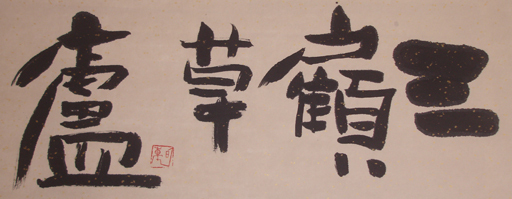 三顧草廬